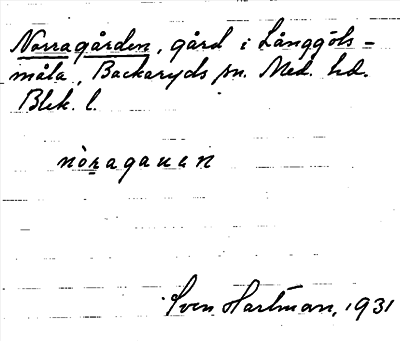 Norragården, gård i Långgöls-
måla, Backaryds sn. Med. hd.
Blek. l.
nòraga
Sven Hartman, 1931